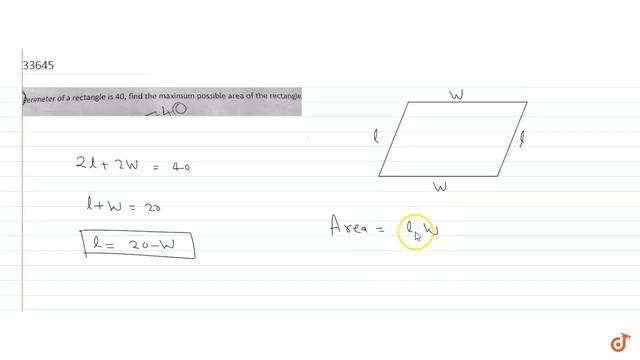 33645
Perimeter of a rectangle is 40, find the maximum possible area of the rectangle
=40
2l+2W = 40
l+W = 20
l = 20-W
W
l
l
W
Area = l.W